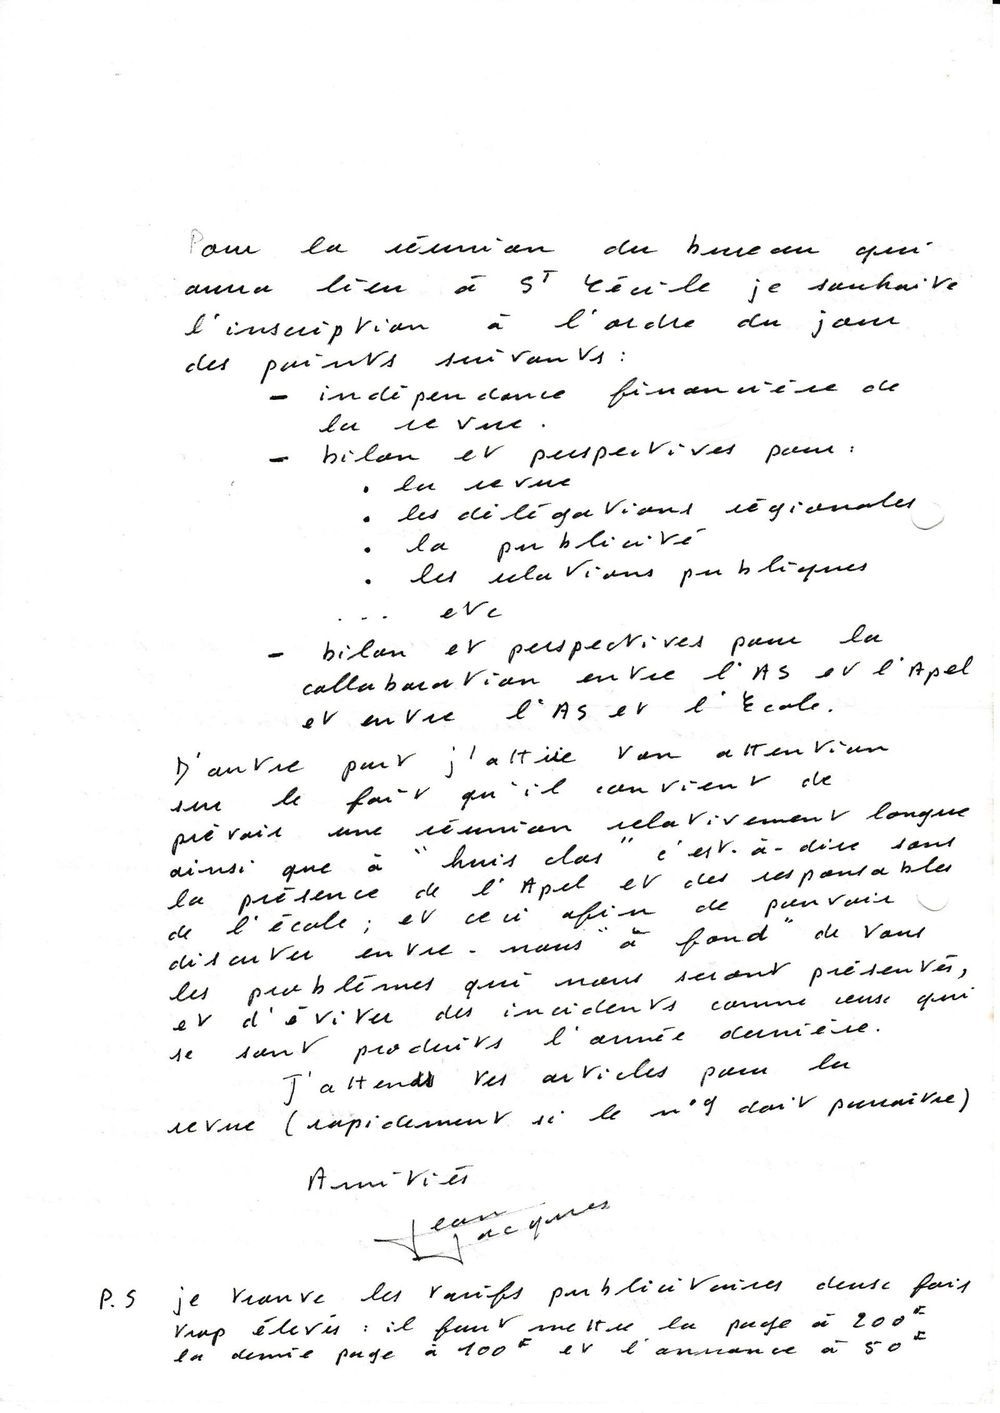 Pour la réunion du bureau qui
aura lieu à S^T Cécile je souhaite
l'inscription à l'ordre du jour
des points suivants :
- indépendance financière de
la revue.
- bilan et perspectives pour :
• la revue
• les délégations régionales
• la publicité
• les relations publiques
... etc
- bilan et perspectives pour la
collaboration entre l'AS et l'Apel
et entre l'AS et l'Ecole.
D'autre part j'attire ton attention
sur le fait qu'il convient de
prévoir une réunion relativement longue
ainsi que à "huis clos" c'est-à-dire sans
la présence de l'Apel et des responsables
de l'école ; et ceci afin de pouvoir
discuter entre-nous "à fond" de tous
les problèmes qui nous seront présentés,
et d'éviter des incidents comme ceux qui
se sont produits l'année dernière.
J'attends tes articles pour la
revue (rapidement si le n°9 doit paraitre)
Amitiés
Jean
Jacques
P.S je trouve les tarifs publicitaires deux fois
trop élevés : il faut mettre la page à 200F
la demie page à 100F et l'annonce à 50F